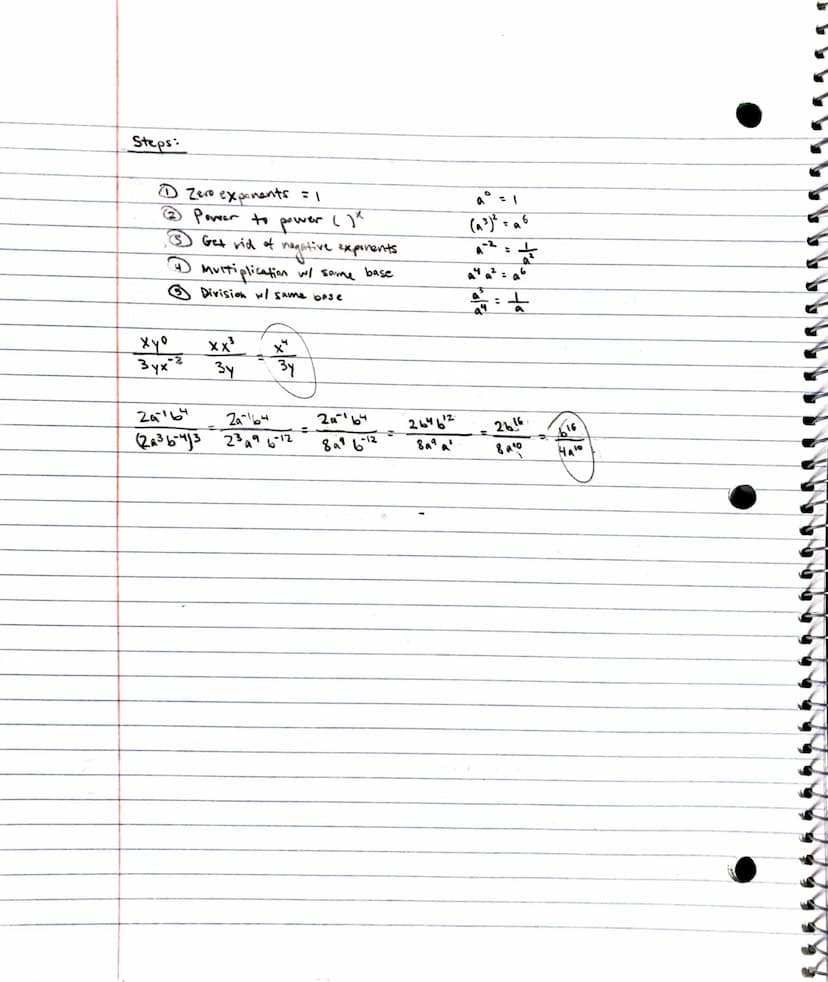 Steps:
① Zero exponents = 1 a⁰ = 1
② Power to power ( )ˣ (a³)² = a⁶
③ Get rid of negative exponents a⁻² = 1/a²
④ Multiplication w/ same base a⁴ a² = a⁶
⑤ Division w/ same base a³/a⁴ = 1/a
xy⁰/3yx⁻³ xx³/3y = x⁴/3y
2a⁻¹b⁴/(2a³b⁻⁴)³ = 2a⁻¹b⁴/2³a⁹b⁻¹² = 2a⁻¹b⁴/8a⁹b⁻¹² = 2b⁴b¹²/8a⁹a¹ = 2b¹⁶/8a¹⁰ = b¹⁶/4a¹⁰